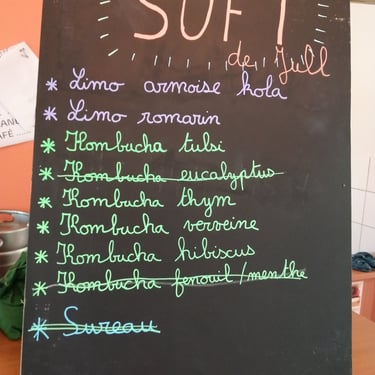 SOFT
de Jull
* Limo armoise kola
* Limo romarin
* Kombucha tulsi
* Kombucha eucalyptus
* Kombucha thym
* Kombucha verveine
* Kombucha hibiscus
* Kombucha fenouil/menthe
* Sureau